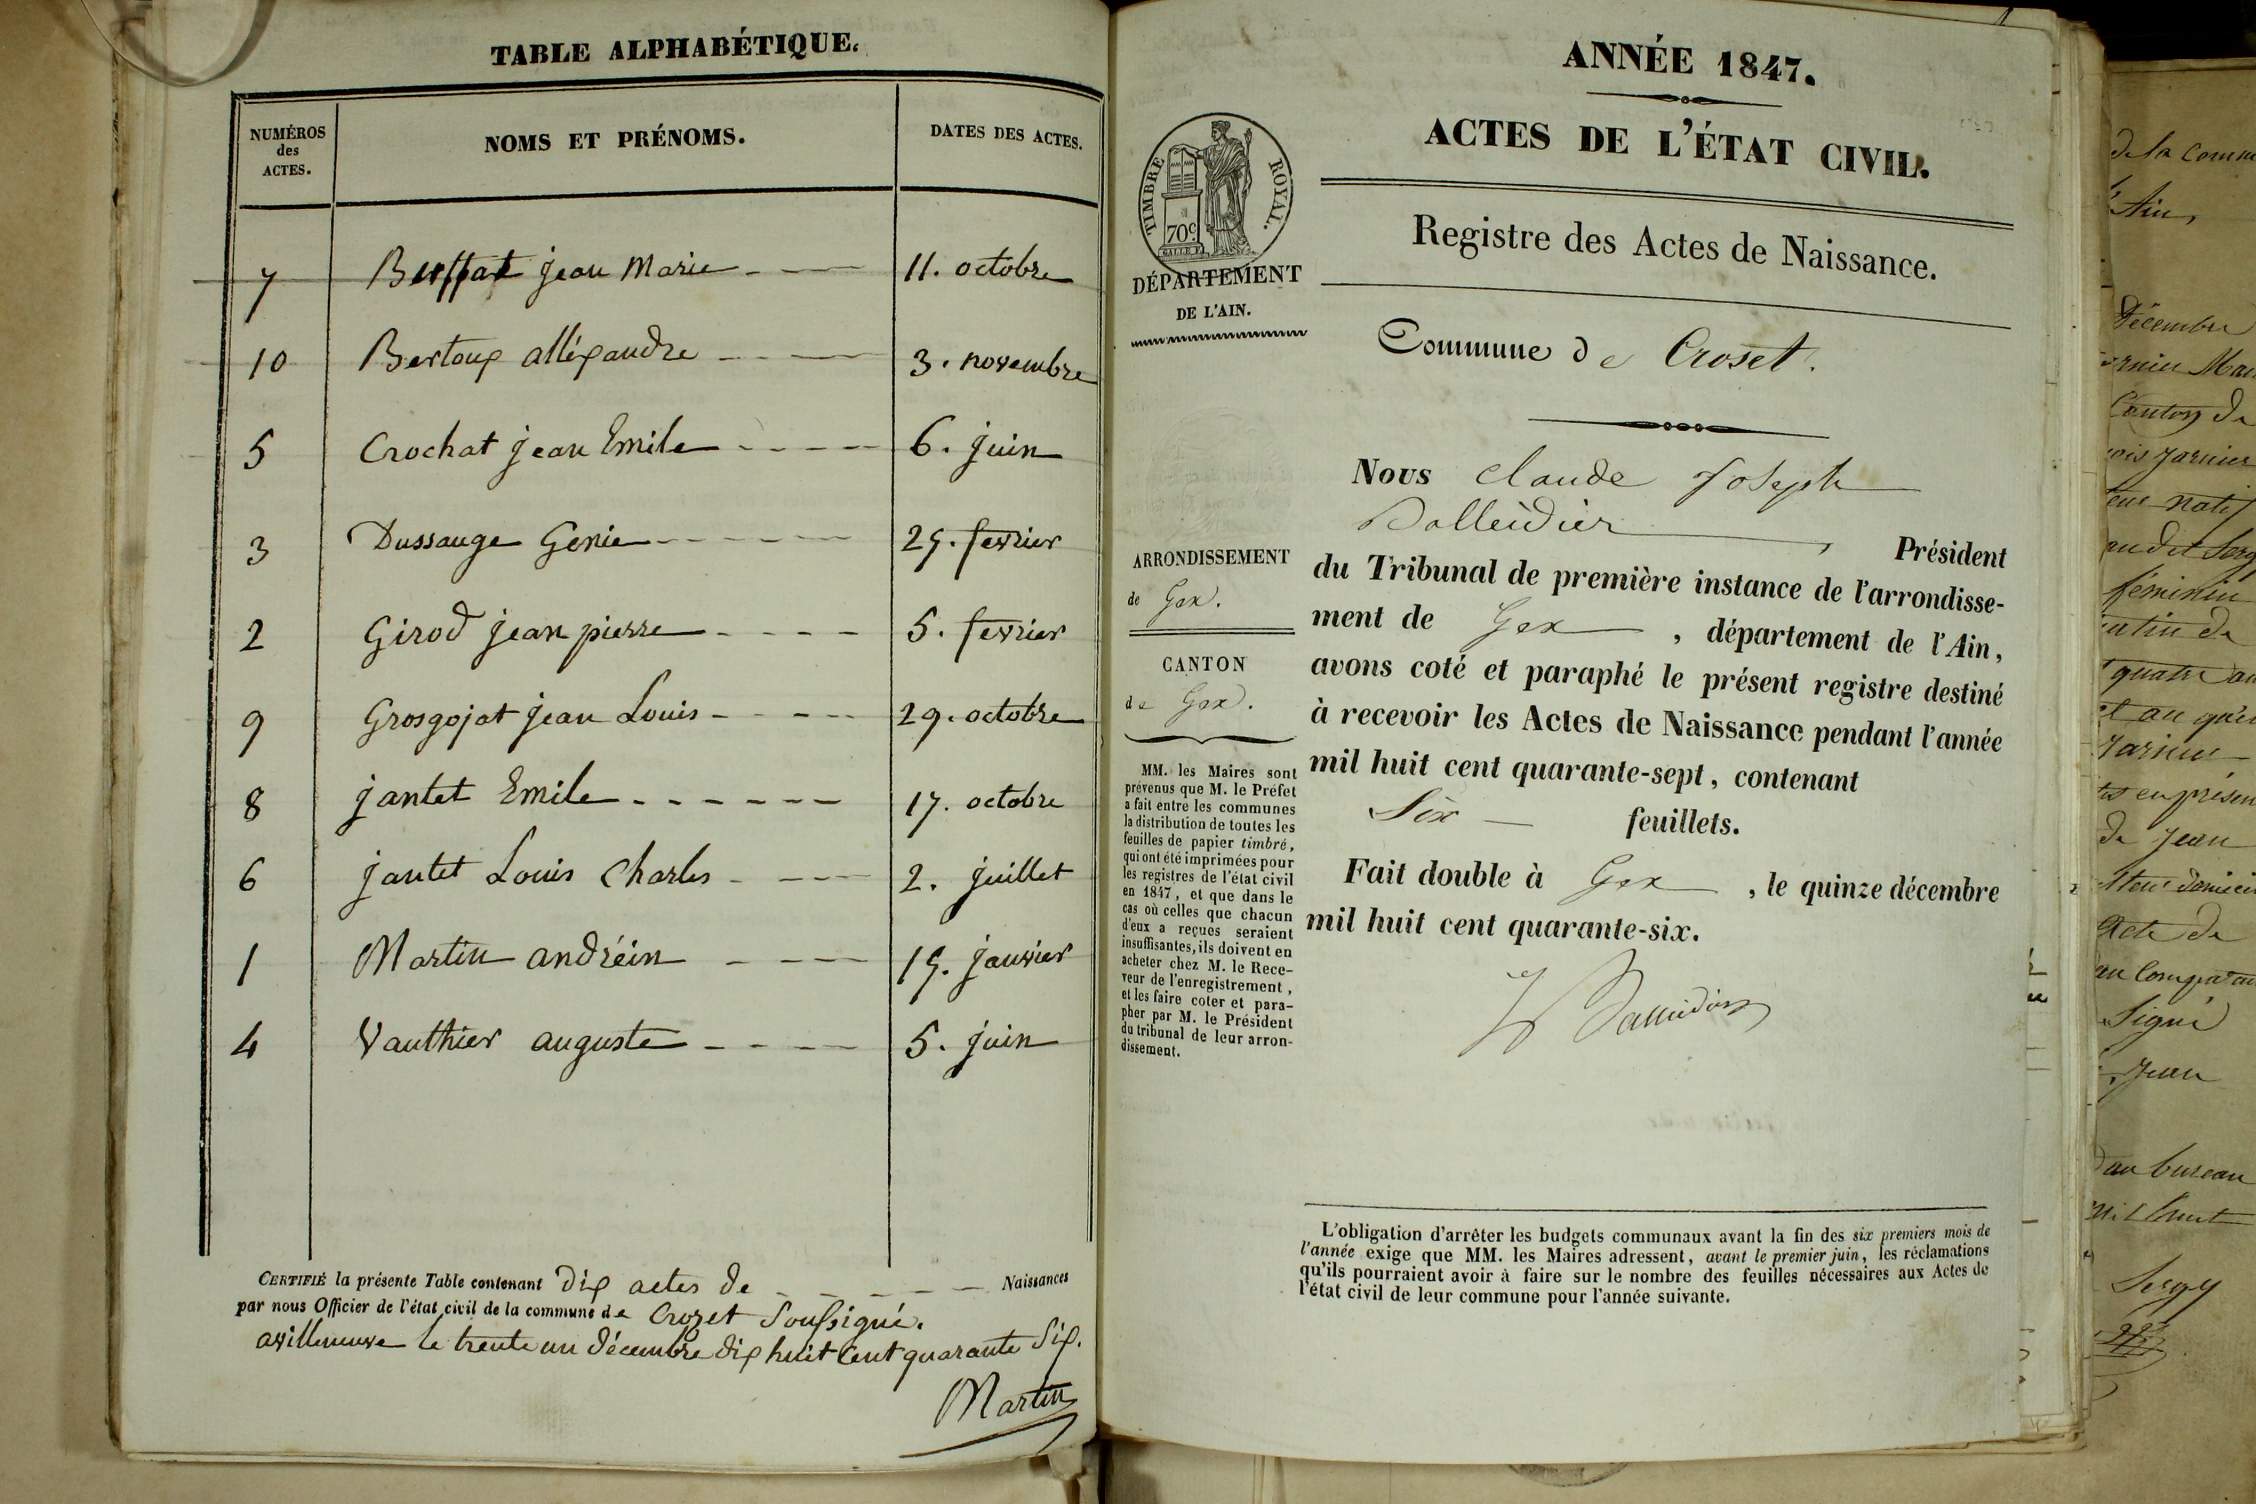 TABLE ALPHABÉTIQUE.
NUMÉROS
des
ACTES.
NOMS ET PRÉNOMS.
DATES DES ACTES.
7 jean Marie 11. octobre
10 Bertoux alléxandre 3. novembre
5 Crochat jean Emile 6. juin
3 Dussauge Génie 25. fevrier
2 Girod jean pierre 5. fevrier
9 Grosgojat jean Louis 29. octobre
8 jantet Emile 17. octobre
6 jantet Louis Charles 2. juillet
1 Martin andréin 15. janvier
4 Vauthier auguste 5. juin
CERTIFIÉ la présente Table contenant dix actes de Naissances
par nous Officier de l'état civil de la commune de Crozet Soussigné.
avilleneuve le trente un décembre dix huit Cent quarante Six.
Martin
ANNÉE 1847.
ACTES DE L'ÉTAT CIVIL.
Registre des Actes de Naissance.
TIMBRE ROYAL.
70c.
DÉPARTEMENT
DE L'AIN.
Commune de Croset.
ARRONDISSEMENT
de Gex.
CANTON
de Gex.
MM. les Maires sont
prévenus que M. le Préfet
a fait entre les communes
la distribution de toutes les
feuilles de papier timbré,
qui ont été imprimées pour
les registres de l'état civil
en 1847, et que dans le
cas où celles que chacun
d'eux a reçues seraient
insuffisantes, ils doivent en
acheter chez M. le Rece-
veur de l'enregistrement,
et les faire coter et para-
pher par M. le Président
du tribunal de leur arron-
dissement.
Nous Claude Joseph
Balleidier, Président
du Tribunal de première instance de l'arrondisse-
ment de Gex, département de l'Ain,
avons coté et paraphé le présent registre destiné
à recevoir les Actes de Naissance pendant l'année
mil huit cent quarante-sept, contenant
Six feuillets.
Fait double à Gex, le quinze décembre
mil huit cent quarante-six.
L'obligation d'arrêter les budgets communaux avant la fin des six premiers mois de
l'année exige que MM. les Maires adressent, avant le premier juin, les réclamations
qu'ils pourraient avoir à faire sur le nombre des feuilles nécessaires aux Actes de
l'état civil de leur commune pour l'année suivante.
de la
Ain,
Décembre
Canton de
féminin
quatre
de Jean
Acte de
Signé
Jean
au bureau
Sergy